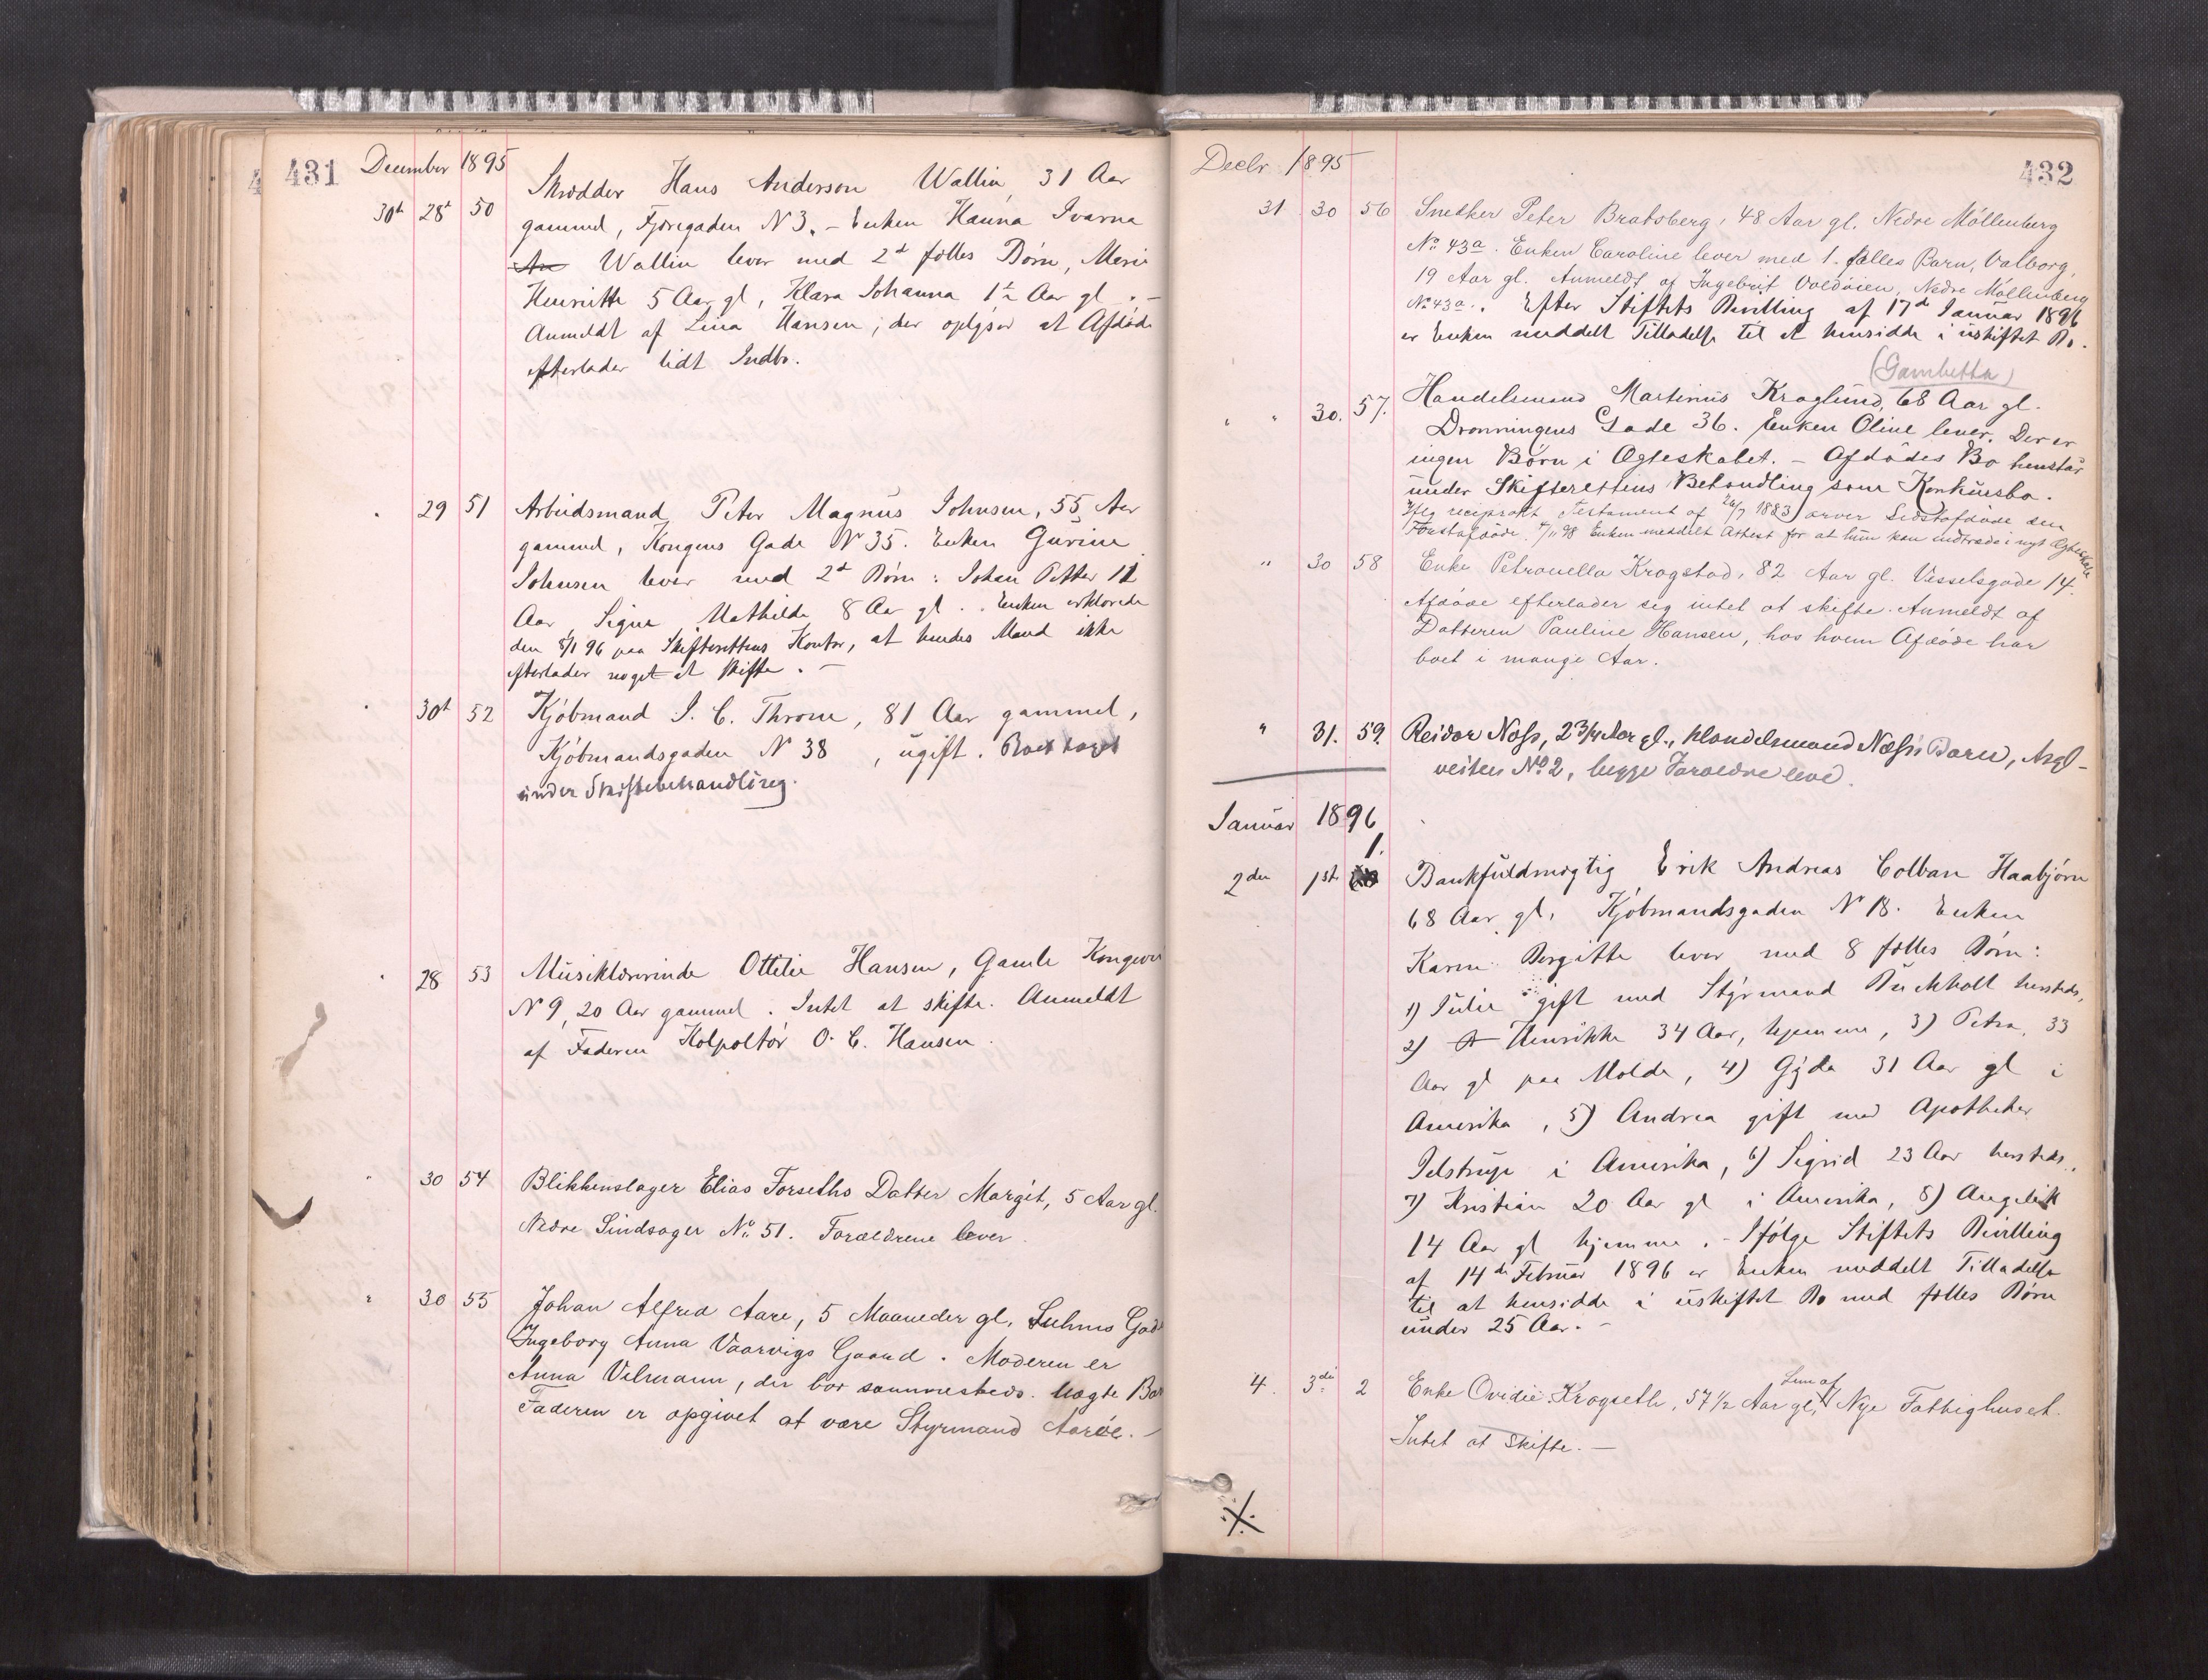 431 December 1895
30t 28t 50 Skrædder Hans Anderson Wallin, 31 Aar
gammel, Fjæregaden N 3. - Enken Hanna Ivarna
An Wallin lever med 2d fælles Børn, Merie
Henriette 5 Aar gl, Klara Johanna 1½ Aar gl. -
Anmeldt af Lina Hansen, der oplyser at Afdøde
efterlader lidt Indbo.
" 29 51 Arbeidsmand Peter Magnus Johnsen, 55 Aar
gammel, Kongens Gade N 35. Enken Gurine
Johnsen lever med 2d Børn: Johan Petter 11
Aar, Signe Mathilde 8 Aar gl. Enken erklærede
den 8/1 96 paa Skifterettens Kontor, at hendes Mand ikke
efterlader noget at skifte. -
" 30t 52 Kjøbmand J. C. Throne, 81 Aar gammel,
Kjøbmandsgaden N 38, ugift. Boet taget
under Skiftebehandling.
" 28 53 Musiklærerinde Ottilie Hansen, Gamle Kongevei
N 9, 20 Aar gammel. Intet at skifte. Anmeldt
af Faderen Kolpoltør O. C. Hansen.
" 30 54 Blikkenslager Elias Forseths Datter Margit, 5 Aar gl.
Nedre Sindsager No. 51. Forældrene lever.
" 30 55 Johan Alfred Aare, 5 Maaneder gl, Suhms Gade
Ingeborg Anna Vaarvigs Gaard. Moderen er
Anna Velmann, der bor sammesteds. Uægte Bar
Faderen er opgivet at være Styrmand Aarøe. -
Decbr 1895 432
31 30 56 Snedker Peter Bratsberg, 48 Aar gl. Nedre Møllenberg
No. 43a. Enken Caroline lever med 1 fælles Barn, Valborg,
19 Aar gl. Anmeldt af Ingebrit Voldøien, Nedre Møllenberg
No 43a. Efter Stiftets Bevilling af 17de Januar 1896
er Enken meddelt Tilladelse til at hensidde i uskiftet Bo.
(Gambetta)
" " 30. 57. Handelsmand Martinus Kroglund, 68 Aar gl.
Dronningens Gade 36. Enken Oline lever. Der er
ingen Børn i Ægteskabet. - Afdødes Bo henstår
under Skifterettens Behandling som Konkursbo.
Iflg reciprokt Testament af 26/7 1883 arver Sidstafdøde den
Førstafdøde. 4/11 98 Enken meddelt Attest for at hun kan indtræde i nyt Ægteskab
" 30 58 Enke Petronella Krogstad, 82 Aar gl. Vesselsgade 14.
Afdøde efterlader sig intet at skifte. Anmeldt af
Datteren Pauline Hansen, hos hvem Afdøde har
boet i mange Aar.
" 31. 59. Reidar Næss, 2 3/4 Aar gl., Handelsmand Næss's Barn, Argl-
veiten No 2, begge Forældre leve.
Januar 1896
2den 1st 1. Bankfuldmægtig Erik Andreas Colban Haabjørn
68 Aar gl, Kjøbmandsgaden N 18. Enken
Karen Bergitte lever med 8 fælles Børn:
1) Julie gift med Styrmand Buckholt hersteds,
2) A Henrikke 34 Aar, hjemme, 3) Petra, 33
Aar gl paa Molde, 4) Gyda 31 Aar gl i
Amerika, 5) Andrea gift med Apotheker
Jelstrup i Amerika, 6) Sigrid 23 Aar hersteds,
7) Kristian 20 Aar gl i Amerika, 8) Angelik
14 Aar gl hjemme. - Ifølge Stiftets Bevilling
af 14de Februar 1896 er Enken meddelt Tilladelse
til at hensidde i uskiftet Bo med fælles Børn
under 25 Aar. -
4. 3die 2 Enke Ovidie Krogseth, 57 1/2 Aar gl, Lem af Nye Fattighuset.
Intet at skifte. -